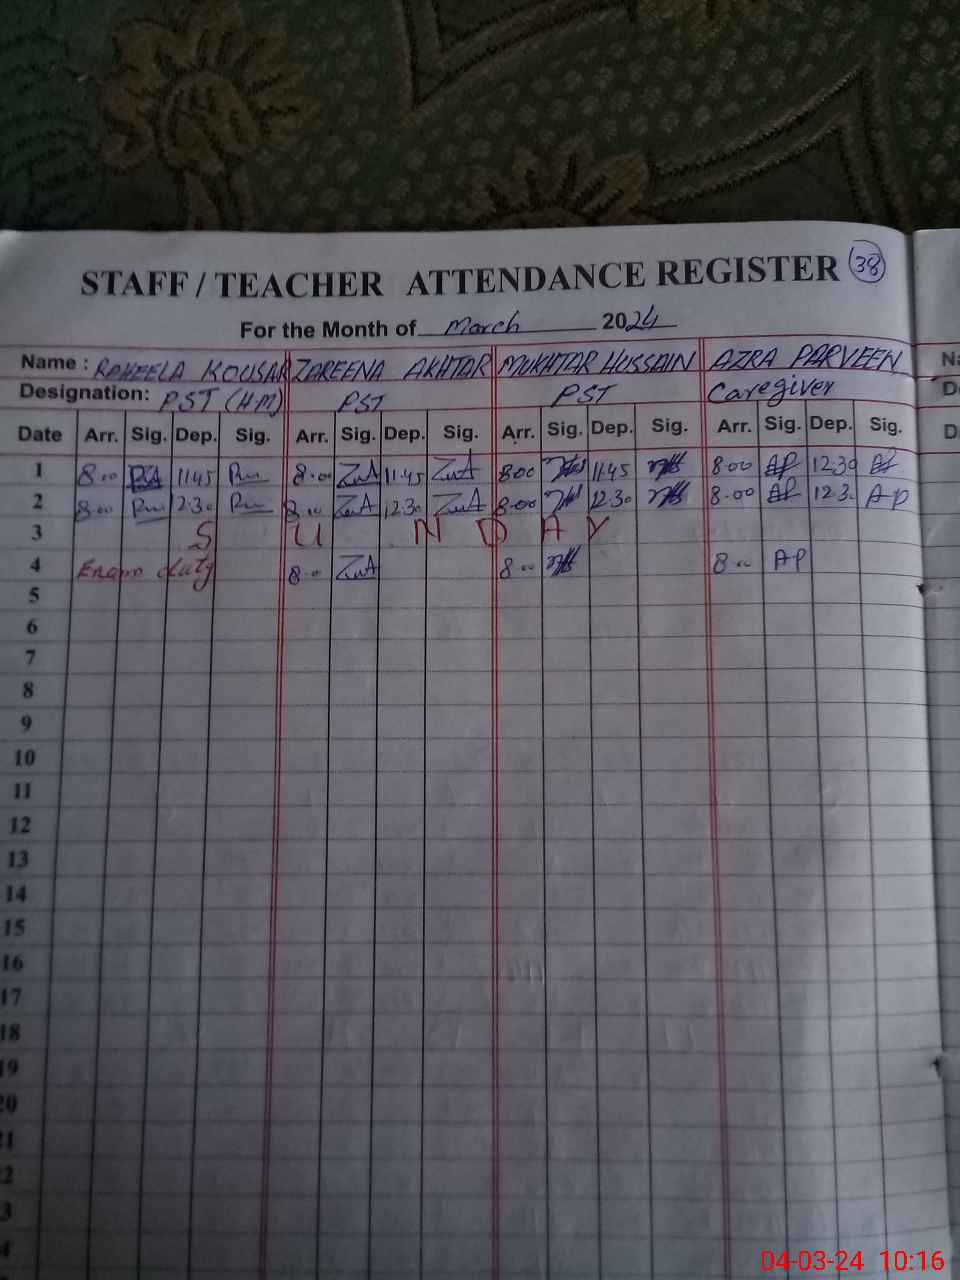 STAFF / TEACHER ATTENDANCE REGISTER 38
For the Month of March 2024
Name : RAHEELA KOUSAR ZAREENA AKHTAR MUKHTAR HUSSAIN AZRA PARVEEN Na
Designation: PST (HM) PST PST Caregiver D
Date Arr. Sig. Dep. Sig. Arr. Sig. Dep. Sig. Arr. Sig. Dep. Sig. Arr. Sig. Dep. Sig. D
1 8.00 11.45 8.00 ZuA 11.45 ZuA 8.00 11.45 8.00 AP 12.30 AP
2 8.00 12.30 8.00 ZuA 12.30 ZuA 8.00 12.30 8.00 AP 12.3 AP
3 S U N D A Y
4 Exam duty 8.00 ZuA 8.00 8.00 AP
5
6
7
8
9
10
11
12
13
14
15
16
17
18
19
20
21
2
3
4
04-03-24 10:16